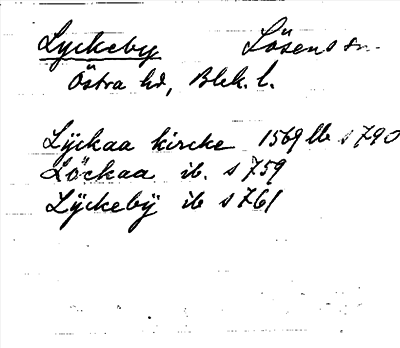 Lyckeby Lösens sn.
Östra hd, Blek. l.
Lÿckaa kircke 1569 lb s 790
Löckaa ib. s 759
Lÿckebÿ ib s 761